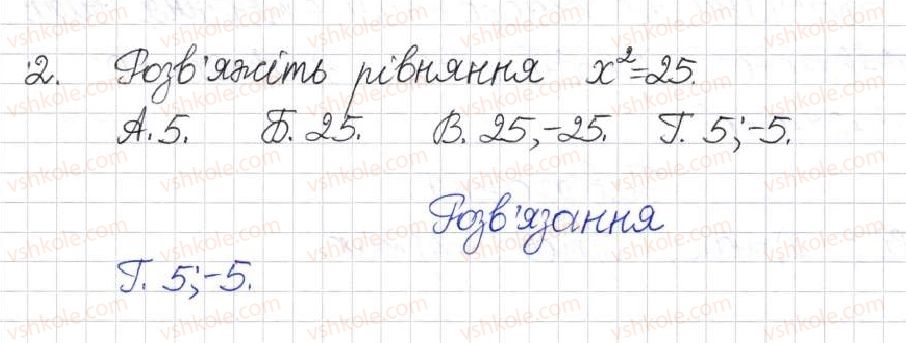 2. Розв'яжіть рівняння x²=25.
А. 5. Б. 25. В. 25,-25. Г. 5;-5.
Розв'язання
Г. 5;-5.